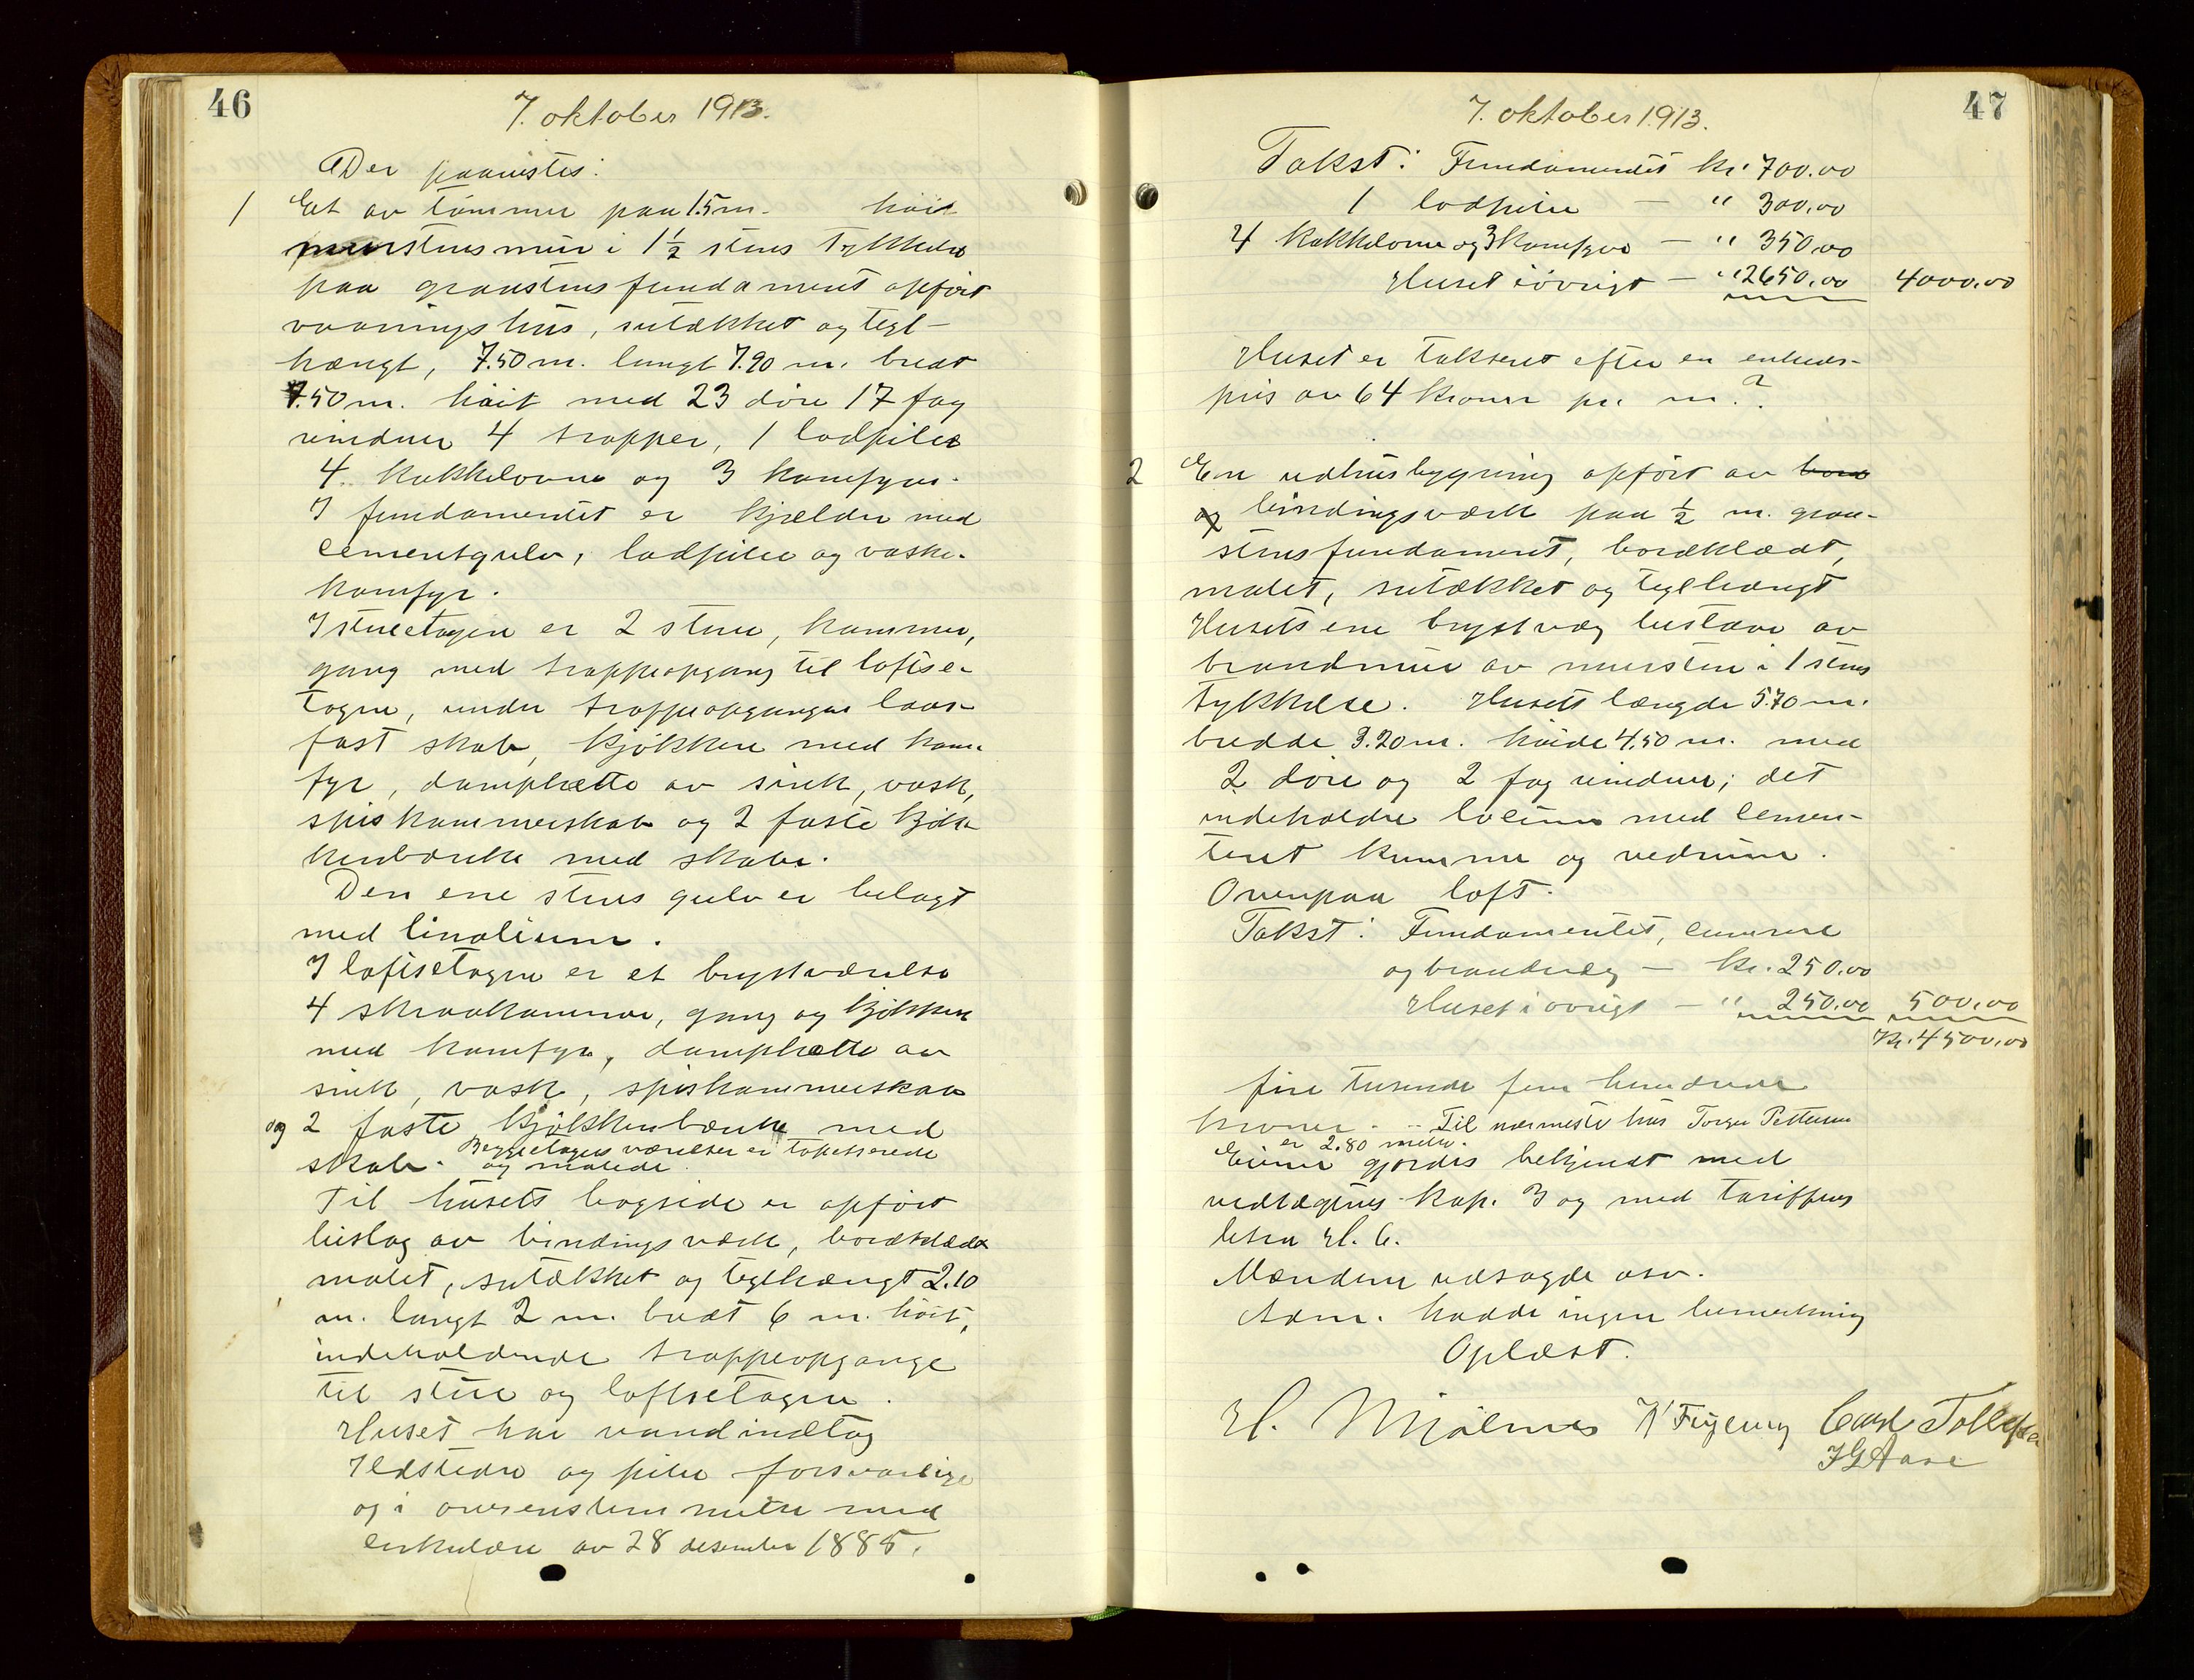 46
7. oktober 1913.
Der paavistes:
1 Et av tømmer paa 1.5 m. høi
murstensmur i 1 1/2 stens tykkelse
paa graastensfundament opført
vaaningshus, sutækket og tegl-
hængt, 7.50 m. langt 7.90 m. bredt
7.50 m. høit med 23 døre 17 fag
vinduer 4 trapper, 1 lodpibe
4 kakkelovne og 3 komfyrer.
I fundamentet er kjælder med
cementgulv, lodpibe og vaske-
komfyr.
I stueetagen er 2 stuer, kammer,
gang med trappeopgang til loftse-
tagen, under trappeopgangen laas-
fast skab, kjøkken med kom-
fyr, damphætte av sink, vask,
spiskammerskab og 2 faste kjøk-
kenbænke med skabe.
Den ene stues gulv er belagt
med linolium.
I loftsetagen er et brystværelse
4 skraakammer, gang og kjøkken
med komfyr, damphætte av
sink, vask, spiskammerskab
og 2 faste kjøkkenbænke med
skabe. Beggeetagers værelser er tapetserede
og malede.
Til husets bagside er opført
bislag av bindingsværk, bordklædt
malet, sutækket og teglhængt 2.10
m. langt 2 m. bredt 6 m. høit,
indeholdende trappeopgange
til stue og loftsetagen.
Huset har vandindtag
Ildsteder og piber forsvarlige
og i overensstemmelse med
cirkulære av 28 desember 1885.
47
7. oktober 1913.
Takst: Fundamentet kr. 700.00
1 lodpibe — " 300.00
4 kakkelovne og 3 komfyrer — " 350.00
Huset iøvrigt — " 2650.00 4000.00
Huset er takseret efter en enheds-
pris av 64 kroner pr. m.2.
2 En udhusbygning opført av bord
og bindingsværk paa 1/2 m. graa-
stensfundament, bordklædt,
malet, sutækket og teglhængt
Husets ene brystvæg bestaar av
brandmur av mursten i 1 stens
tykkelse. Husets længde 5.70 m.
bredde 3.20 m. høide 4.50 m. med
2 døre og 2 fag vinduer; det
indeholder locum med cemen-
teret kumme og vedrum.
Ovenpaa loft.
Takst: Fundamentet, kumme
og brandvæg — kr. 250.00
Huset iøvrigt — " 250.00 500.00
Kr. 4500.00
fire tusende fem hundrede
kroner. - Til nærmeste hus Torger Pettersen
er 2.80 meter.
Eieren gjordes bekjendt med
vedtægtens kap. 3 og med tariffens
litra H. C.
Mændene udsagde osv.
Adm. hadde ingen bemerkning
Oplæst.
H. Mjølmes Carl Tollefsen
J G Aase